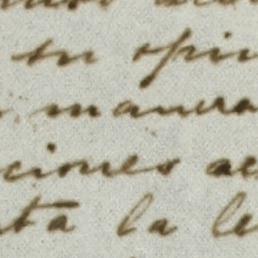 tu opin
manera
ciones ac
ta la le